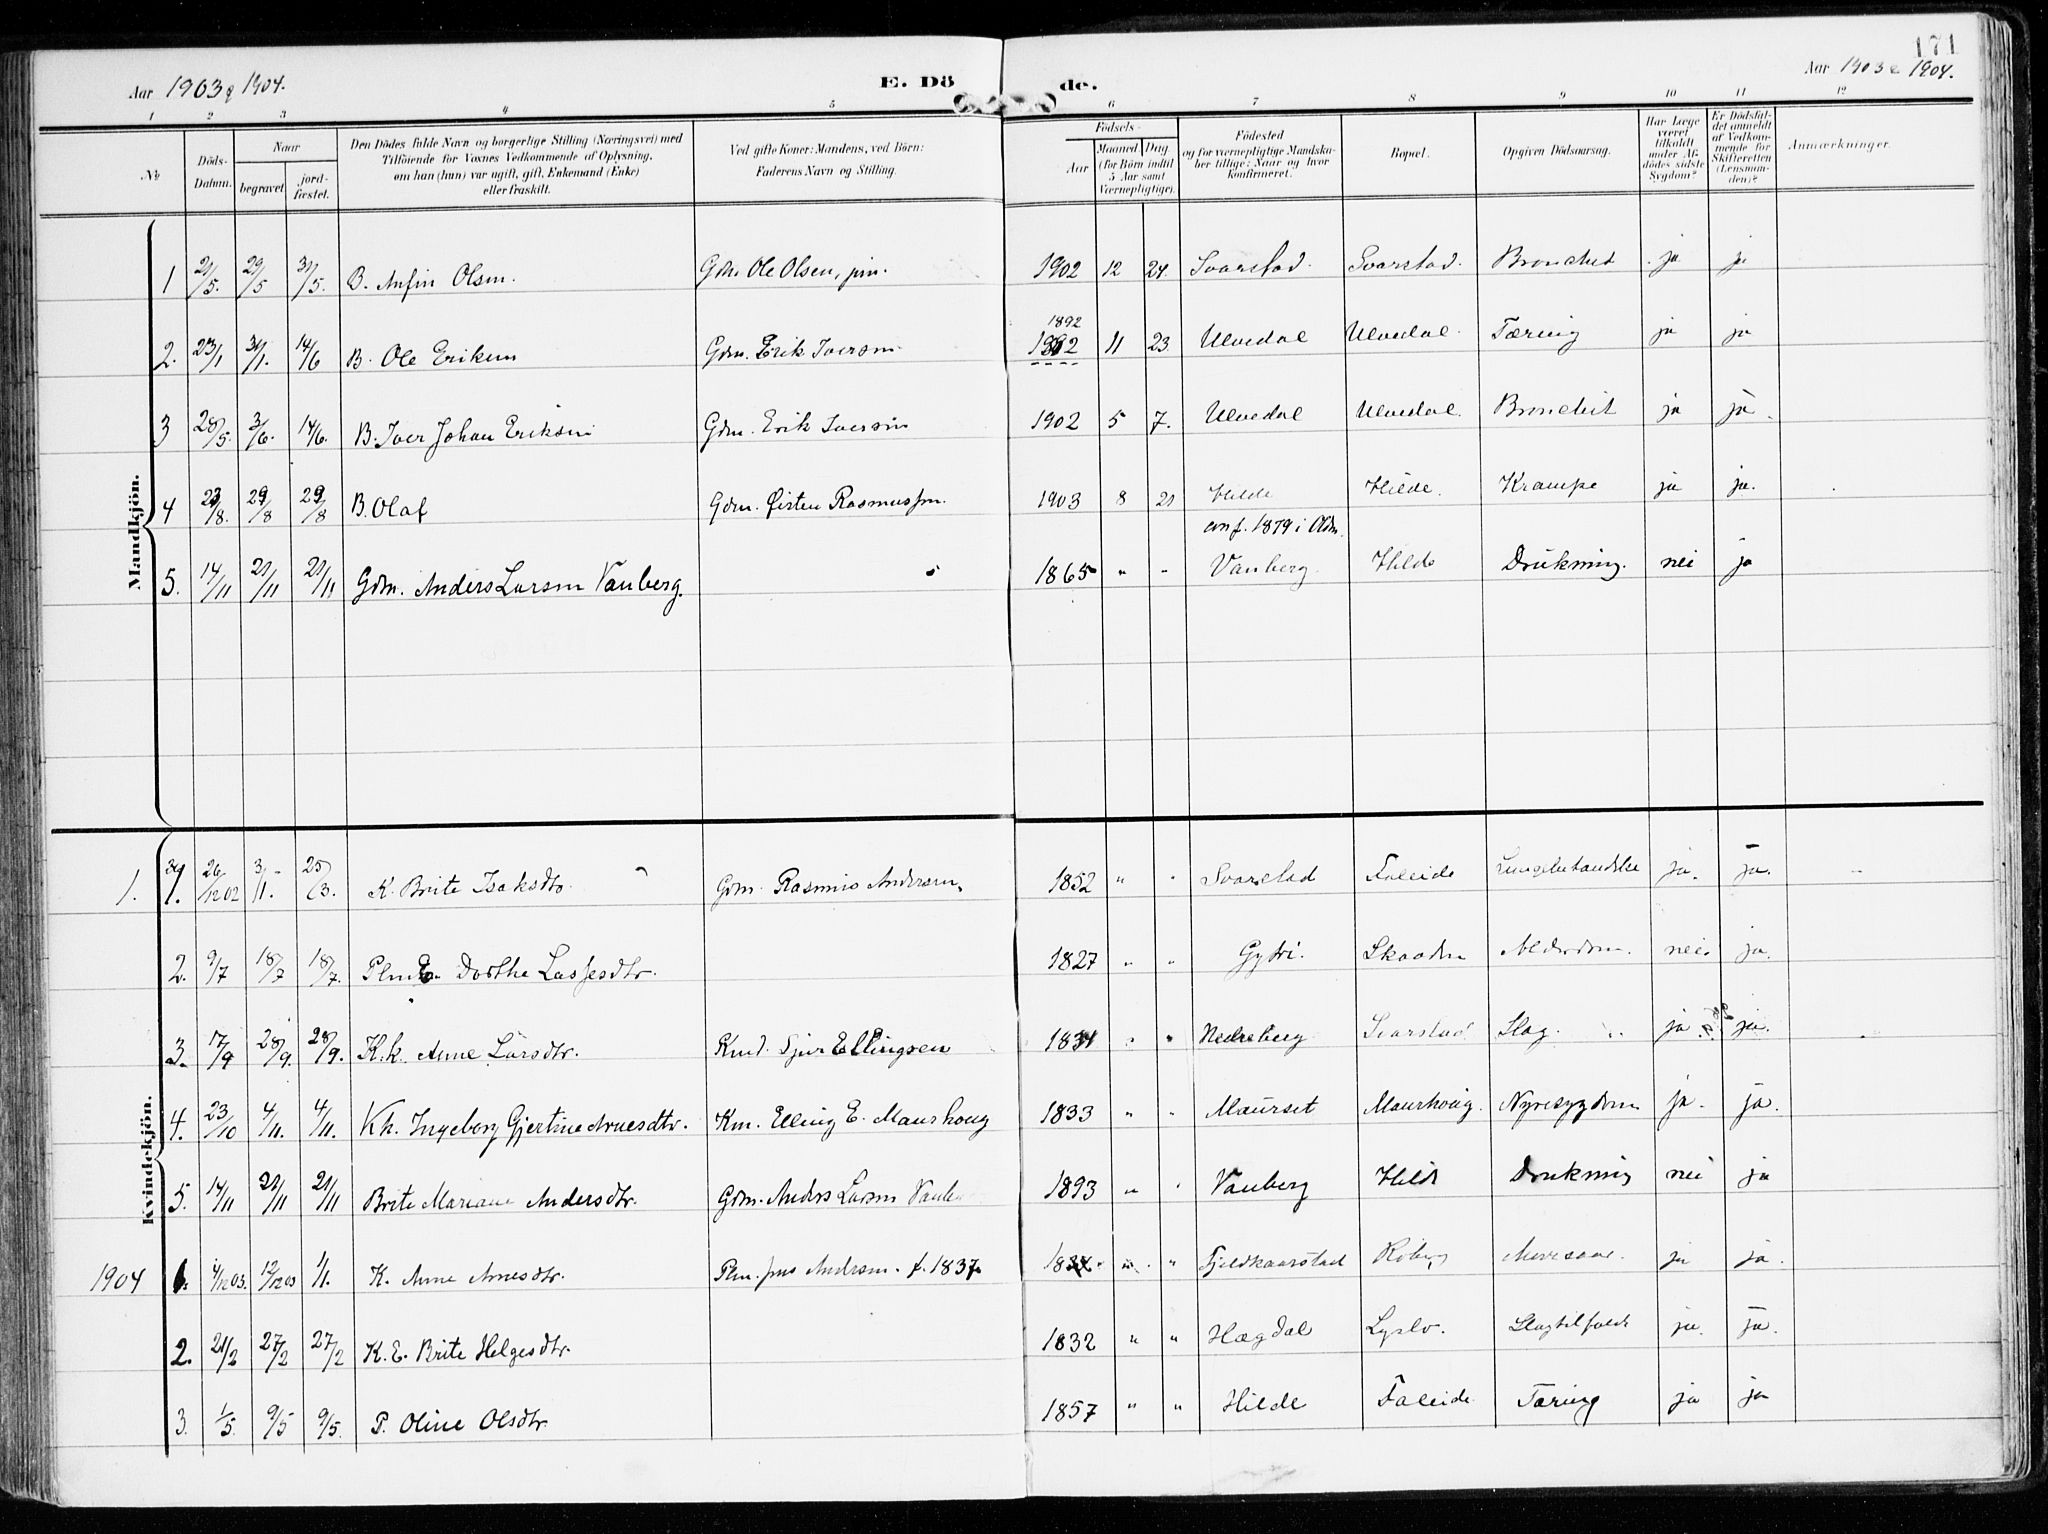 171
Aar 1903 & 1904.
E. Döde.
Aar 1903 & 1904.
1 2 3 4 5 6 7 8 9 10 11 12
No
Döds-Datum.
Naar
begravet
jordfæstet.
Den Dödes fulde Navn og borgerlige Stilling (Næringsvei) med
Tilföiende for Voxnes Vedkommende af Oplysning,
om han (hun) var ugift, gift, Enkemand (Enke)
eller fraskilt.
Ved gifte Koner: Mandens, ved Börn:
Faderens Navn og Stilling.
Födsels-
Aar
Maaned
Dag
(for Börn indtil
5 Aar samt
Værnepligtige).
Födested
og for værnepligtige Mandskaber tillige: Naar og hvor
konfirmeret.
Bopæl.
Opgiven Dödsaarsag.
Har Læge
været
tilkaldt
under Afdödes sidste
Sygdom?
Er Dödsfaldet anmeldt
af Vedkommende for
Skifteretten
(Lensmanden)?
Anmærkninger.
Mandkjön.
1 21/5. 29/5 31/5. B. Anfin Olsen. Gdm. Ole Olsen, jun. 1902 12 24. Svarstad. Svarstad. Bronchit ja ja
1892
2. 23/1 31/1. 14/6 B. Ole Eriksen Gdm. Erik Iversen 11 23 Ulvedal Ulvedal. Tæring ja ja
3 28/5. 3/6. 14/6. B. Iver Johan Eriksen Gdm. Erik Iversen 1902 5 7. Ulvedal Ulvedal. Bronchit ja ja.
4 23/8. 29/8 29/8 B. Olaf Gdm. Østen Rasmussen. 1903 8 21 Hilde Hilde. Krampe ja ja.
conf. 1879 i Olden.
5. 14/11 21/11 21/11 Gdm. Anders Larsen Vanberg. 1865 " " Vanberg. Hilde Drukning. nei ja
Kvindekjön.
1. 1. 26/12 02 3/1. 25/3. K. Brite Isaksdtr. Gdm. Rasmus Andersen. 1852 " " Svarstad Faleide Lungebetændelse ja. ja.
2. 9/7 18/7 18/7. E. Dorthe Lassesdtr. 1827 " " Gytri. Skaaden Alderdom. nei ja.
3. 17/9 28/9. 28/9. K.k. Anne Larsdtr. Kmd. Sjur Ellingsen " " Nedreberg Svarstad Slag. ja ja.
4. 23/10 4/11. 4/11. Kh. Ingeborg Gjertine Arnesdtr. Km. Elling E. Maurhoug 1833 " " Maurset Maurhoug. Nyresygdom ja. ja.
5. 14/11 21/11 21/11 Brite Mariane Andersdtr. Gdm. Anders Larsen 1893 " " Vanberg Hilde Drukning nei ja
1904 1. 4/12 03. 12/12 03 1/1. K. Anne Arnesdtr. Plm. Jens Andersen. f. 1837. " " Fjeldkaarstad Roberg Mavesaar. ja ja.
2. 21/2 27/2 27/2 K. E. Brite Helgesdtr. 1832 " " Hægdal Lyslo. Slagtilfælde ja. ja.
3. 1/5. 9/5 9/5. P. Oline Olsdtr. 1857 " " Hilde Faleide Tæring ja ja